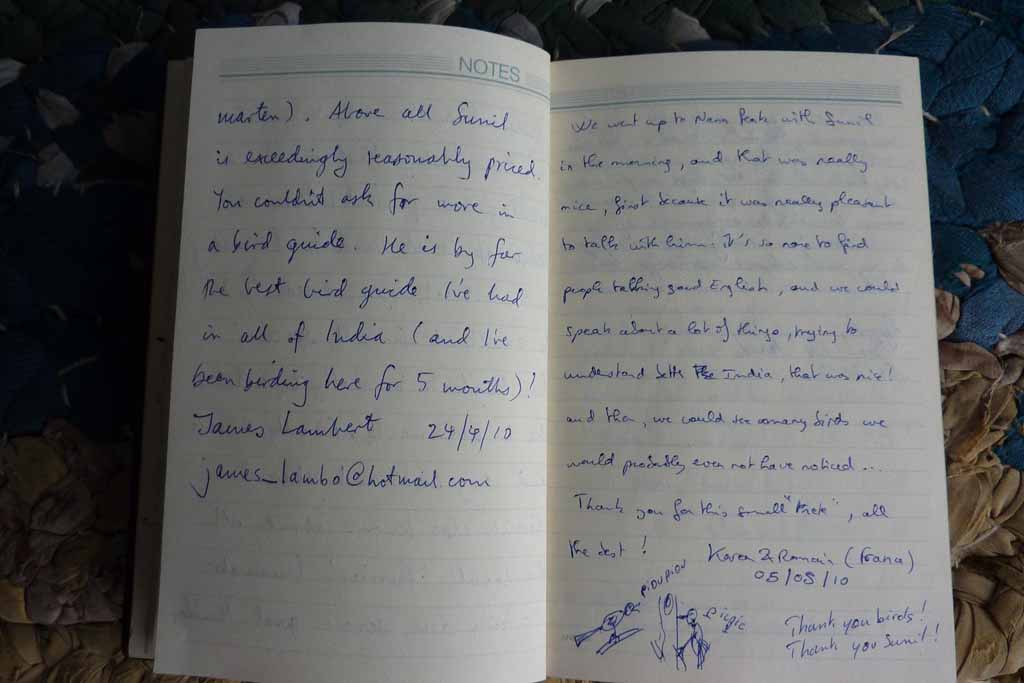 NOTES
marten). Above all Sunil
is exceedingly reasonably priced.
You couldn't ask for more in
a bird guide. He is by far
the best bird guide I've had
in all of India (and I've
been birding here for 5 months)!
James Lambert 24/4/10
james_lambo@hotmail.com
We went up to Naina Peak with Sunil
in the morning, and that was really
nice, first because it was really pleasant
to talk with him: it's so rare to find
people talking good English, and we could
speak about a lot of things, trying to
understand better India, that was nice!
and then, we could see so many birds we
would probably even not have noticed...
Thank you for this small "trek", all
the best! Karen & Romain (France)
05/05/10
PIOUPIOU
Thank you birds!
Thank you Sunil!